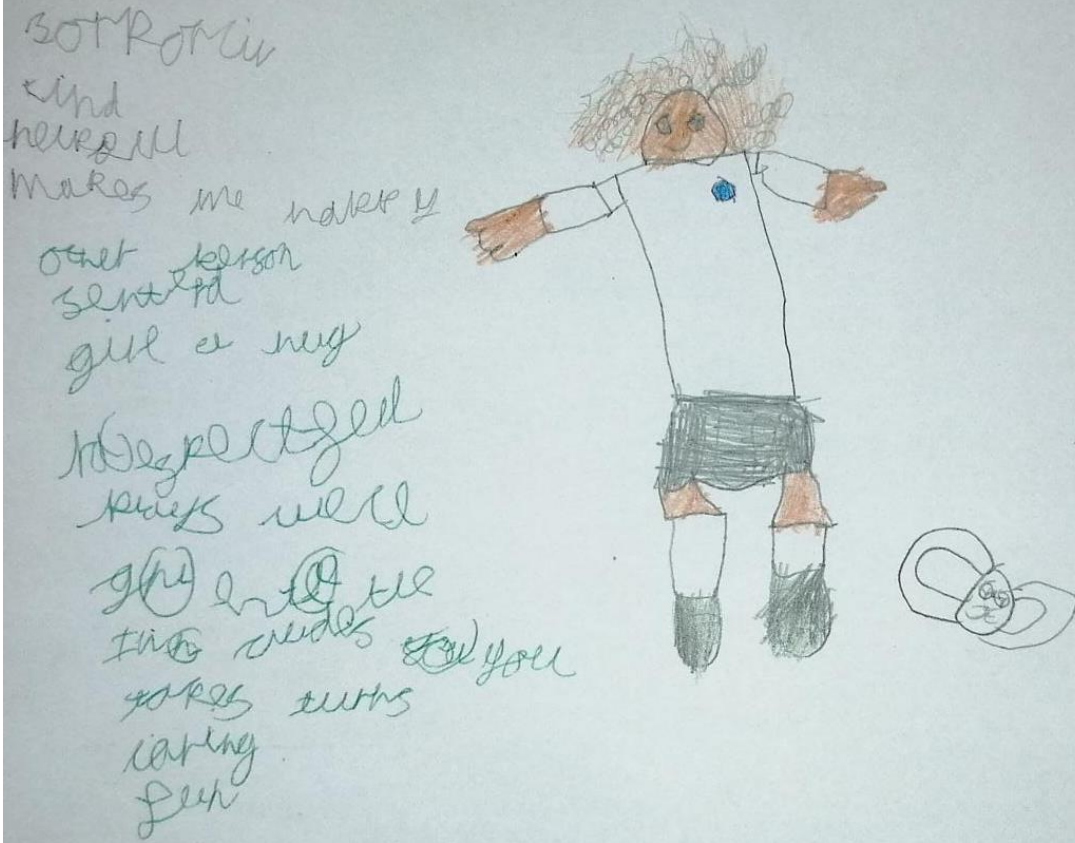 kind
helpful
Makes me happy
other person
give a hug
Respectful
plays well
gentle
includes you
takes turns
caring
fun